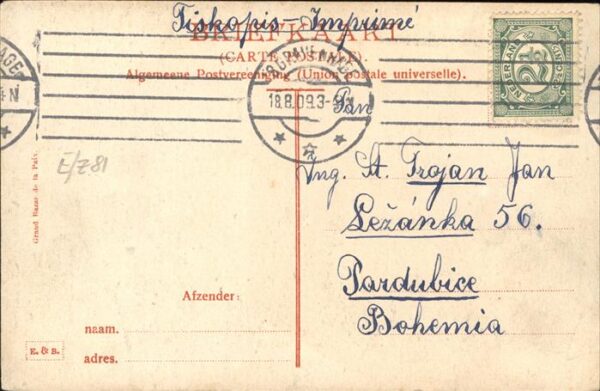 Tiskopis - Imprimé
BRIEFKAART
(CARTE POSTALE)
Algemeene Postvereeniging (Union postale universelle).
'S GRAVENHAGE
18.8.09.3-4N
NEDERLAND
2½
CENT
Pan
Ing. St. Trojan Jan
Ležánka 56.
Pardubice
Bohemia
Grand Bazar de la Paix.
E/Z81
Afzender:
naam.
adres.
E. & B.